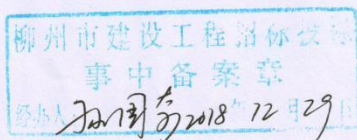 柳州市建设工程招标投标
事中备案章
经办人 2018年12月29日